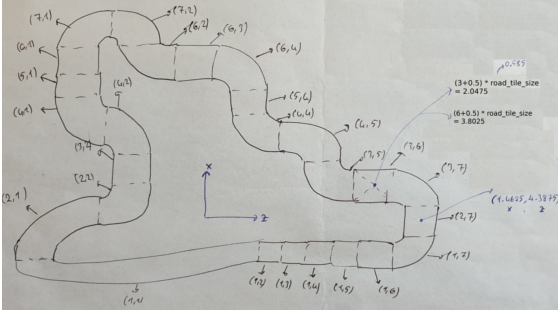 (7,1)
(7,2)
(6,2)
(6,3)
(6,4)
(6,1)
(5,1)
(4,1)
(4,2)
(5,4)
(4,4)
(4,5)
0,585
(3+0.5) * road_tile_size
= 2.0475
(6+0.5) * road_tile_size
= 3.8025
(3,5)
(3,6)
(3,7)
(2,2)
(2,1)
x
z
(1.4625, 4.3875)
x , z
(2,7)
(1,7)
(1,1)
(1,2)
(1,3)
(1,4)
(1,5)
(1,6)